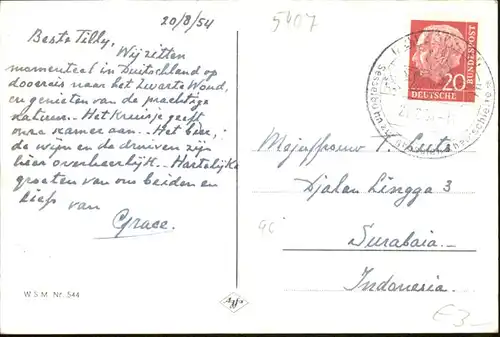 20/8/54
5407
Beste Tilly,
Wij zitten
momenteel in Duitschland op
doorreis naar het Zwarte Woud,
en genieten van de prachtige
natuur.. Het Kruisje geeft
onze kamer aan.. Het bier,
de wijn en de druiven zijn
hier overheerlijk.. Hartelijke
groeten van ons beiden en
liefs van
Grace.
W S M Nr. 544
DEUTSCHE
BUNDESPOST
20
Sesselbahn
Mejuffrouw
Djalan Lingga 3
Surabaia.
Indonesia.
£3-